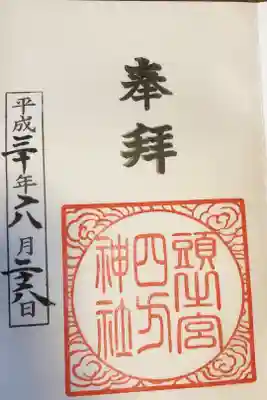 奉拝
頭之宮
四方
神社
平成三十年八月日